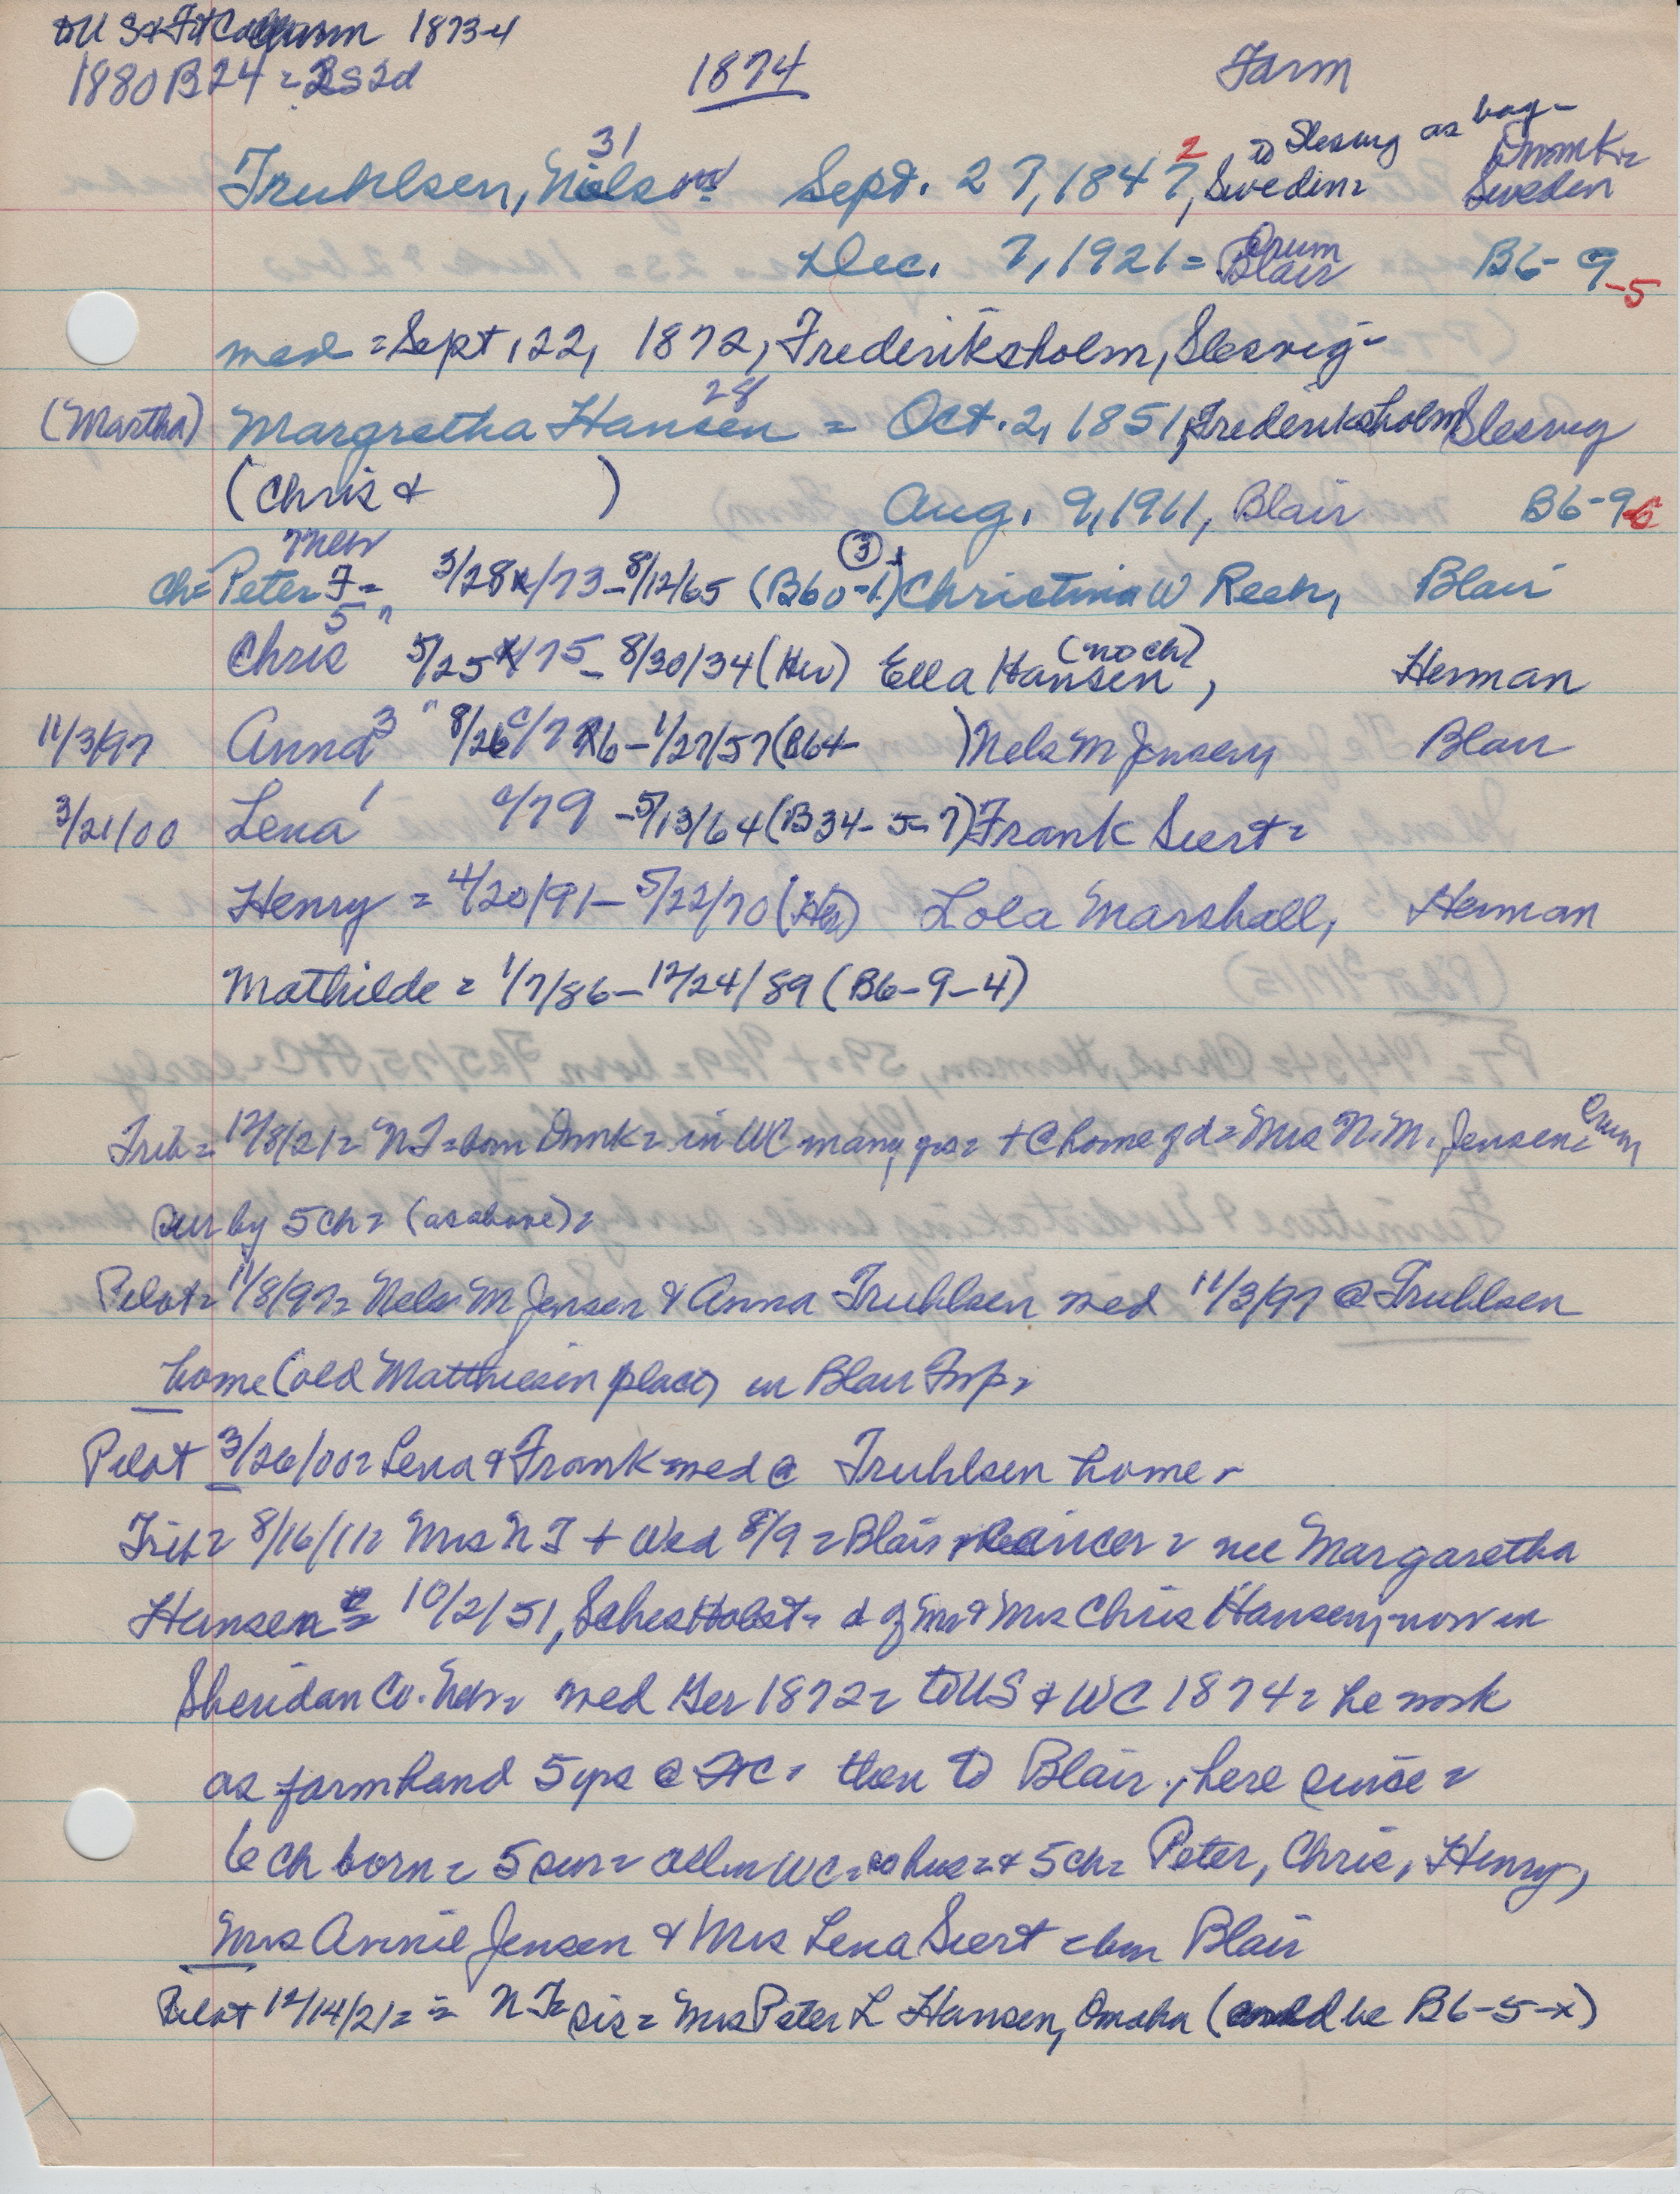 to US & Ft Calhoun 1873-4
1880 B24 = 2s 2d
1874
Farm
31
2
to Slesvig as boy-
Dnmk=
Truhlsen, Niels
Sept. 27, 1847, Sweden=
Sweden
Dec. 7, 1921 =
Orum
Blair
B6-9-5
med = Sept. 22, 1872, Frederiksholm, Slesvig-
28
(Martha) Margretha Hansen = Oct. 2, 1851, Frederiksholm Slesvig
(Chris & )
Aug. 9, 1911, Blair
B6-9-6
new
③
ch= Peter F= 3/28/73-8/12/65 (B60-1) Christina W Reeh, Blair
5 "
Chris 5/25/75-8/30/34 (Her) Ella Hansen (no ch), Herman
11/3/97 Anna 3 " 8/26 /76-1/27/57 (B64- ) Nels M Jensen Blair
3/21/00 Lena 1 /79 -5/13/64 (B34-5-7) Frank Siert=
Henry = 4/20/91-5/22/70 (Her) Lola Marshall, Herman
Mathilde = 1/7/86-12/24/89 (B6-9-4)
Trib= 12/8/21= NT= born Dnmk= in WC many yrs= + @ home of d= Mrs N. M. Jensen= Orum
sur by 5 ch= (as above)=
Pilot= 11/8/97= Nels M Jensen & Anna Truhlsen med 11/3/97 @ Truhlsen
home (old Matthiesen place) in Blair Twp=
Pilot 3/26/00= Lena & Frank med @ Truhlsen home=
Trib= 8/16/11= Mrs NT + Wed 8/9= Blair= cancer= nee Margaretha
Hansen= 10/2/51, SchesHolst= d of Mr & Mrs Chris Hansen, now in
Sheridan Co. Neb= med Ger 1872= to US & WC 1874= he work
as farmhand 5 yrs @ FtC= then to Blair, here since=
6 ch born= 5 sur= all in WC= so hus= & 5 ch= Peter, Chris, Henry,
Mrs Annie Jensen & Mrs Lena Siert= bur Blair
Pilot 12/14/21= = NT= sis= Mrs Peter L Hansen, Omaha (could be B6-5-x)